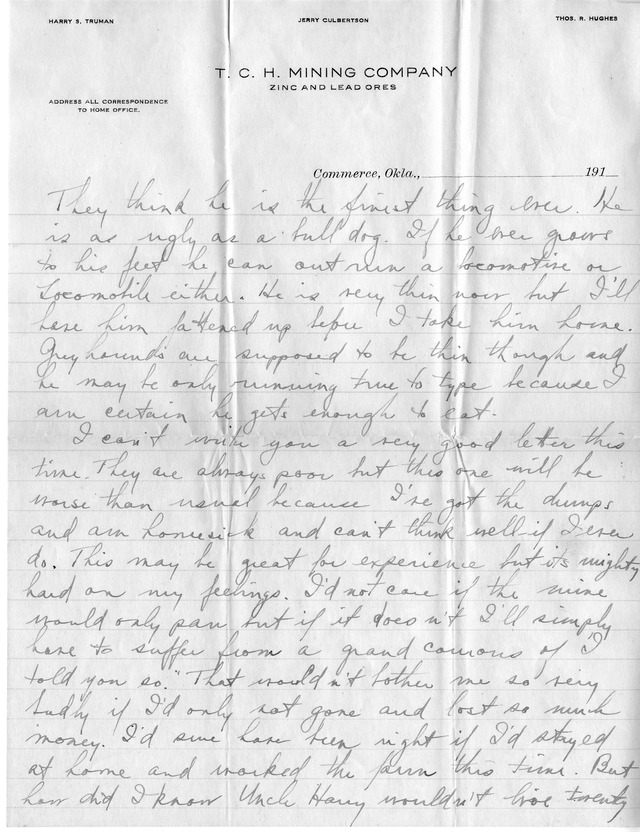 HARRY S. TRUMAN JERRY CULBERTSON THOS. R. HUGHES
T. C. H. MINING COMPANY
ZINC AND LEAD ORES
ADDRESS ALL CORRESPONDENCE
TO HOME OFFICE.
Commerce, Okla., 191
They think he is the finest thing ever. He
is as ugly as a bull dog. If he ever grows
to his feet he can out run a locomotive or
Locomobile either. He is very thin now but I'll
have him fattened up before I take him home.
Greyhounds are supposed to be thin though and
he may be only running true to type because I
am certain he gets enough to eat.
I can't write you a very good letter this
time. They are always poor but this one will be
worse than usual because I've got the dumps
and am homesick and can't think well if I ever
do. This may be great for experience but its mighty
hard on my feelings. I'd not care if the mine
would only pan but if it doesn't I'll simply
have to suffer from a grand chorous of "I
told you so." That wouldn't bother me so very
badly if I'd only not gone and lost so much
money. I'd sure have been right if I'd stayed
at home and worked the farm this time. But
how did I know Uncle Harry wouldn't live twenty